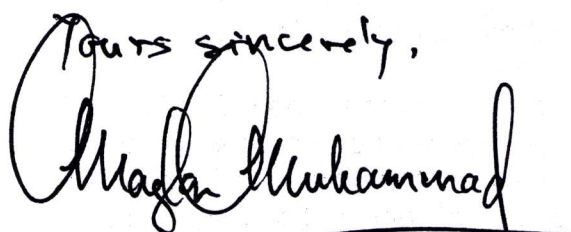 Yours sincerely,
Maglan Muhammad